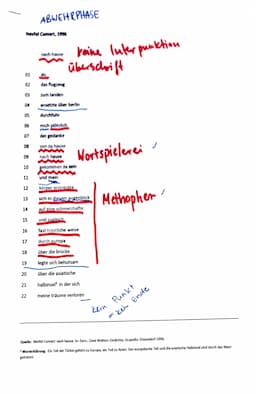 ABWEHRPHASE
Nevfel Cumart, 1996
nach hause
keine Interpunktion
Überschrift
01 als
02 das flugzeug
03 zum landen
04 ansetzte über berlin
05 durchfuhr
06 mich plötzlich
07 der gedanke
08 von zu hause
09 nach hause
10 gekommen zu sein
Wortspielerei
11 und mein
12 körper entspannte
13 sich in diesem augenblick
14 auf eine schmerzhafte
15 und zugleich
16 fast tröstliche weise
17 durch europa
18 über die brücke
Methophen
19 legte sich behutsam
20 über die asiatische
21 halbinsel² in der sich
22 meine träume verloren
kein Punkt
= kein Ende
Quelle: Nevfel Cumart: nach hause. In: Ders., Zwei Welten. Gedichte. Grupello: Düsseldorf 1996.
² Worterklärung: Ein Teil der Türkei gehört zu Europa, ein Teil zu Asien. Der europäische Teil und die asiatische Halbinsel sind durch das Meer getrennt.